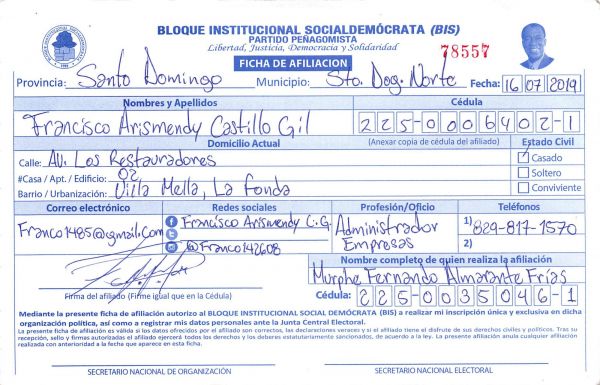 BLOQUE INSTITUCIONAL SOCIALDEMÓCRATA (BIS)
PARTIDO PEÑAGOMISTA
Libertad, Justicia, Democracia y Solidaridad
78557
FICHA DE AFILIACION
Provincia: Santo Domingo Municipio: Sto. Dgo. Norte Fecha: 16 07 2019
Nombres y Apellidos Cédula
Francisco Arismendy Castillo Gil 225-0006402-1
Domicilio Actual (Anexar copia de cédula del afiliado) Estado Civil
Calle: AV. Los Restauradores Casado
#Casa / Apt. / Edificio: 02 Soltero
Barrio / Urbanización: Villa Mella, La Fonda Conviviente
Correo electrónico Redes sociales Profesión/Oficio Teléfonos
Franco1485@gmail.com Francisco Arismendy C.G. Administrador Empresas 1) 829-817-1570
@Franco142608 2)
Nombre completo de quien realiza la afiliación
Murphe Fernando Almarante Frías
Firma del afiliado (Firme igual que en la Cédula) Cédula: 225-0035046-1
Mediante la presente ficha de afiliación autorizo al BLOQUE INSTITUCIONAL SOCIAL DEMÓCRATA (BIS) a realizar mi inscripción única y exclusiva en dicha
organización política, así como a registrar mis datos personales ante la Junta Central Electoral.
La presente ficha de afiliación es válida si los datos ofrecidos por el afiliado son correctos, las declaraciones veraces y si el afiliado tiene el disfrute de sus derechos civiles y políticos. Tras su
recepción, sello y firmas autorizadas el afiliado ejercerá todos los derechos y los deberes estatutariamente sancionados, de acuerdo a la ley. La presente afiliación anula cualquier afiliación
realizada con anterioridad a la fecha que aparece en esta ficha.
SECRETARIO NACIONAL DE ORGANIZACIÓN SECRETARIO NACIONAL ELECTORAL